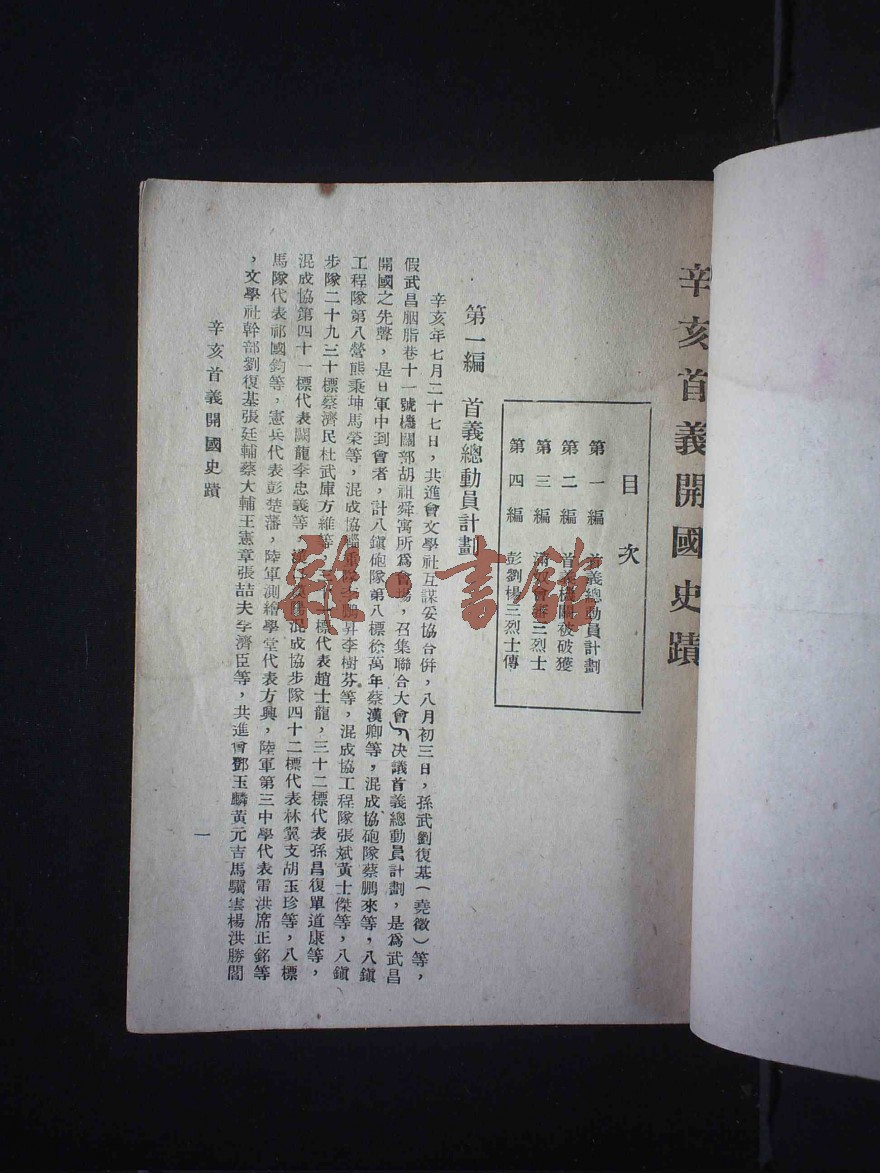 辛亥首義開國史蹟
目次
第一編 首義總動員計劃
第二編 首義機關被破獲
第三編 滿奴會審三烈士
第四編 彭劉楊三烈士傳
第一編 首義總動員計劃
辛亥年七月二十七日，共進會文學社互謀妥協合併，八月初三日，孫武劉復基（堯澂）等，
假武昌胭脂巷十一號機關部胡祖舜寓所爲會場，召集聯合大會，决議首義總動員計劃，是爲武昌
開國之先聲，是日軍中到會者，計八鎭砲隊第八標徐萬年蔡漢卿等，混成協砲隊蔡鵬來等，八鎭
工程隊第八營熊秉坤馬榮等，混成協輜重隊李鵬昇李樹芬等，混成協工程隊張斌黃士傑等，八鎭
步隊二十九三十標蔡濟民杜武庫方維等，三十一標代表趙士龍，三十二標代表孫昌復單道康等，
混成協第四十一標代表闕龍李忠義等，漢口漢陽混成協步隊四十二標代表林翼支胡玉珍等，八標
馬隊代表祁國鈞等，憲兵代表彭楚藩，陸軍測繪學堂代表方興，陸軍第三中學代表雷洪席正銘等
，文學社幹部劉復基張廷輔蔡大輔王憲章張喆夫李濟臣等，共進會鄧玉麟黃元吉馬驥雲楊洪勝閻
辛亥首義開國史蹟
一
龍書館